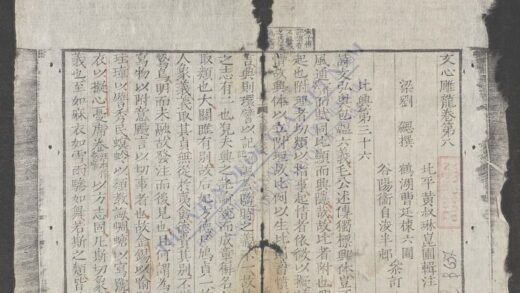 文心雕龍卷第八
北平黃叔琳崑圃輯注
梁劉勰撰 鶴湖曹廷棟六圃
參訂
谷陽衞自浚半邨
比興第三十六
詩文弘奧包韞六義毛公述傳獨標興體豈
風通而賦同比顯而興隱哉故比者附也興
起也附理者切類以指事起情者依微以擬
情故興體以立附理故比例以生比則畜憤
言興則環譬以記諷蓋隨時之義不一故
之志有二也觀夫興之託諭婉而成章稱名
取類也大關雎有別故后妃方德尸鳩貞一故
人象義義取其貞無從於夷禽德貴其別不
鷙鳥明而未融故發注而後見也且何謂為
寫物以附意颺言以切事者也故金錫以喻
珪璋以譬秀民螟蛉以類教誨蜩螗以寫號
衣以擬心憂席卷以方志固凡斯切象
義也至如麻衣如雪兩驂如舞若斯之類皆